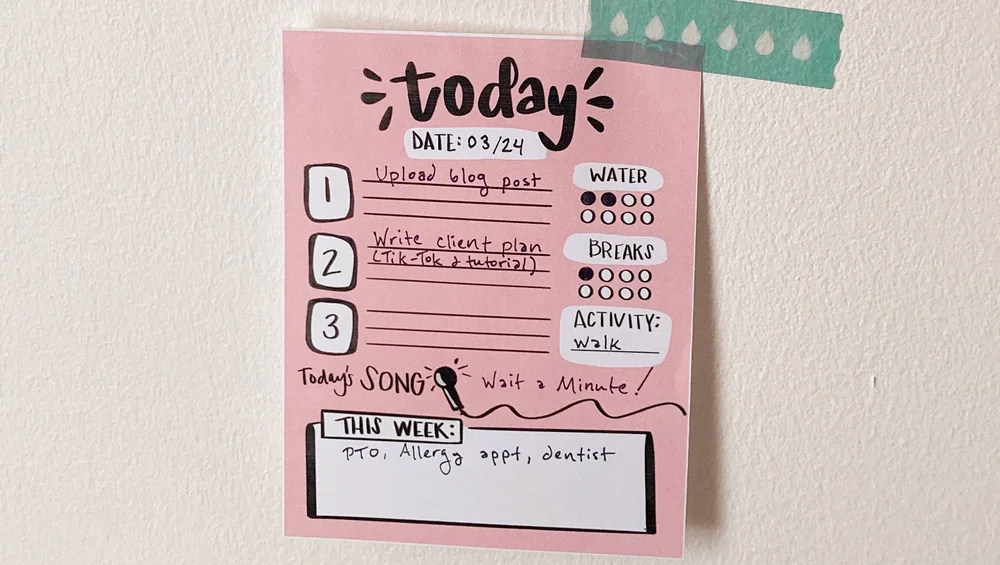 today
DATE: 03/24
1 Upload blog post
WATER
2 Write client plan
(Tik-Tok & tutorial)
BREAKS
3
ACTIVITY:
walk
Today's SONG Wait a Minute!
THIS WEEK:
PTO, Allergy appt, dentist